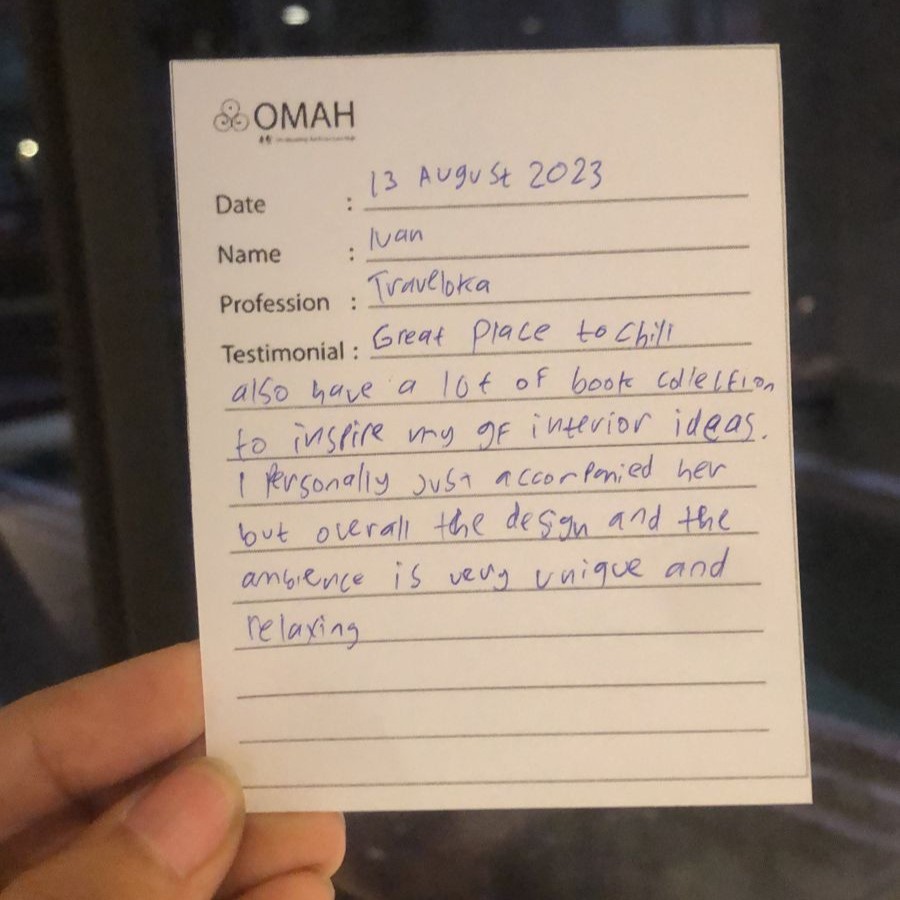 OMAH
Date : 13 August 2023
Name : Ivan
Profession : Traveloka
Testimonial : Great Place to Chill
also have a lot of book collection
to inspire my gf interior ideas.
I Personally Just accompanied her
but overall the design and the
ambience is very unique and
relaxing